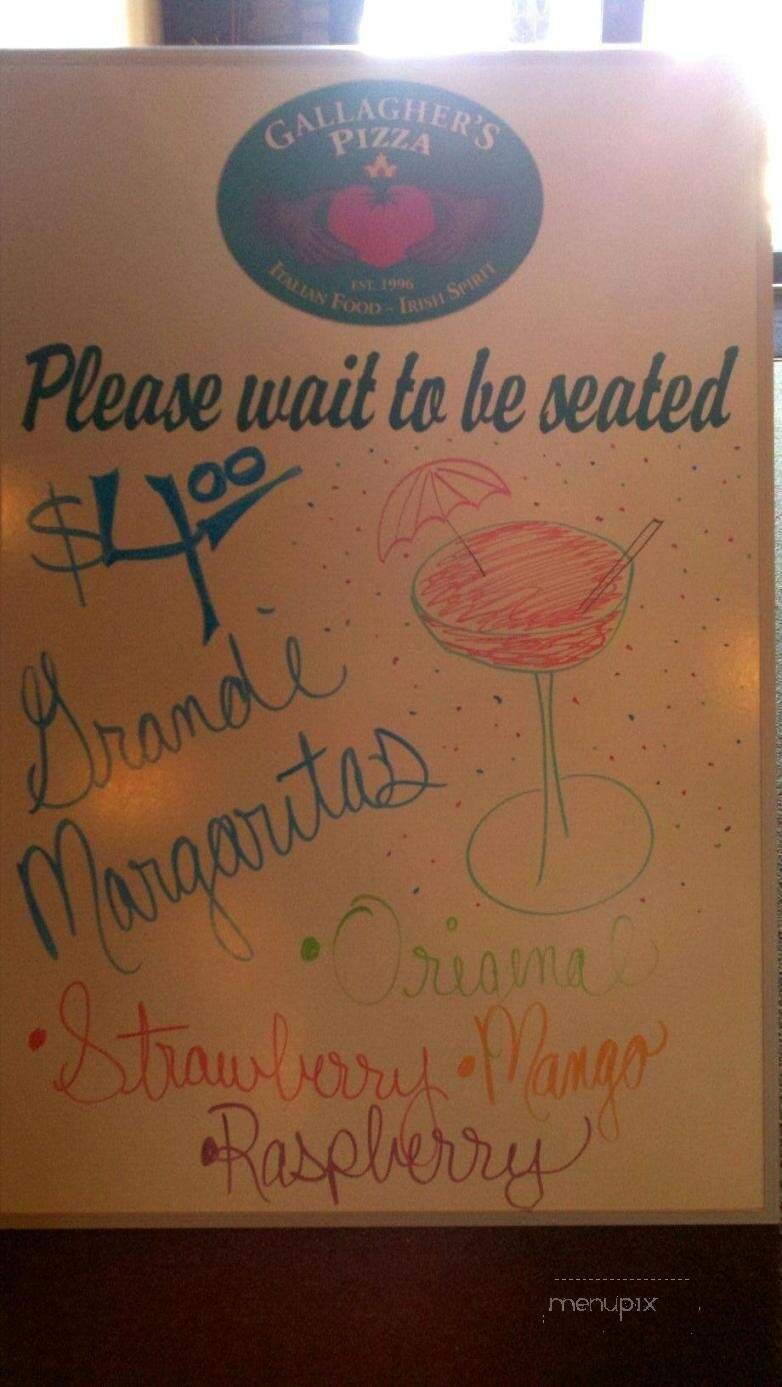 GALLAGHER'S
PIZZA
EST. 1996
ITALIAN FOOD - IRISH SPIRIT
Please wait to be seated
$4.00
Grandè
Margaritas
• Original
• Strawberry • Mango
• Raspberry
menupix